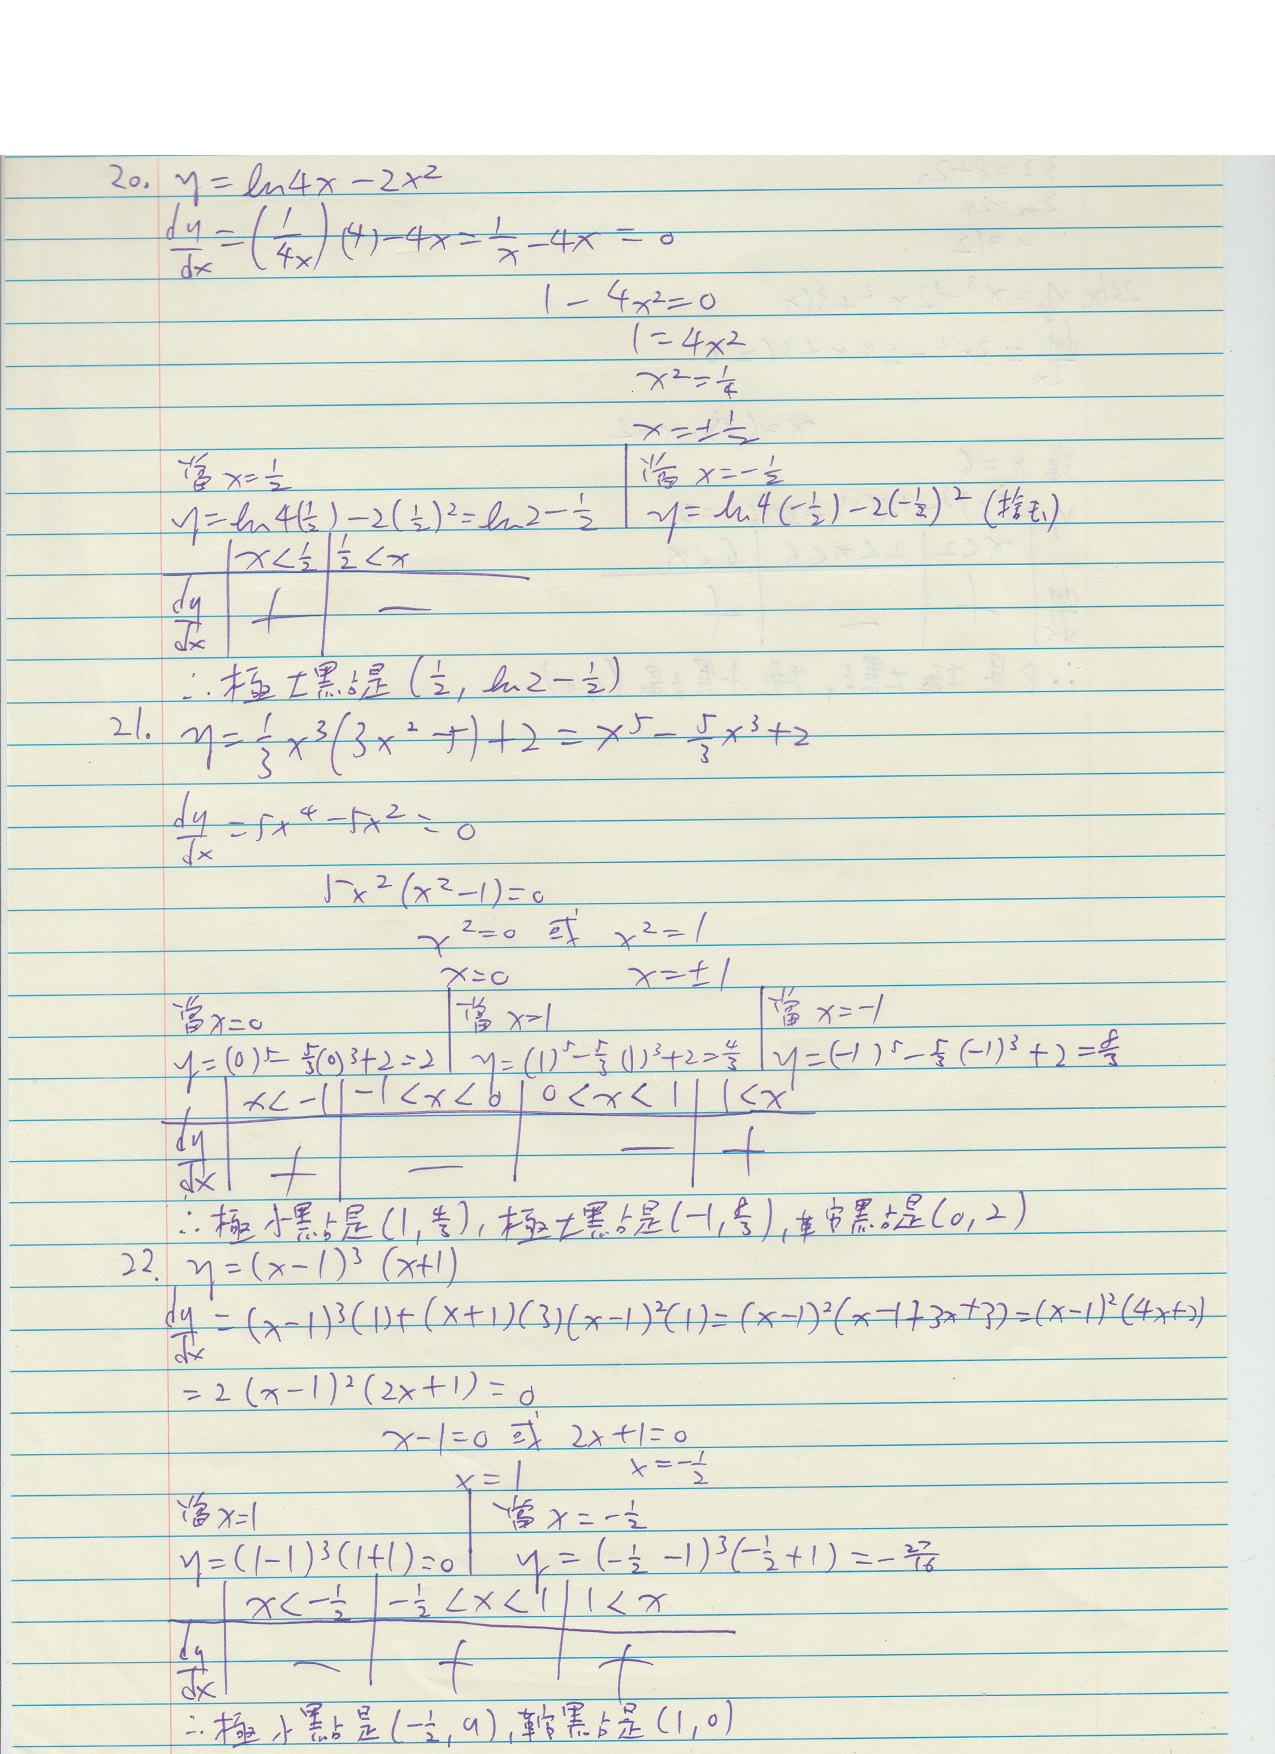 20. y = ln4x - 2x²
dy/dx = (1/4x)(4) - 4x = 1/x - 4x = 0
1 - 4x² = 0
1 = 4x²
x² = 1/4
x = ±1/2
當 x = 1/2 | 當 x = -1/2
y = ln4(1/2) - 2(1/2)² = ln2 - 1/2 | y = ln4(-1/2) - 2(-1/2)² (捨去)
| x < 1/2 | 1/2 < x
dy/dx | + | —
∴ 極大點是 (1/2, ln2 - 1/2)
21. y = 1/3 x³(3x² - 5) + 2 = x⁵ - 5/3 x³ + 2
dy/dx = 5x⁴ - 5x² = 0
5x²(x² - 1) = 0
x² = 0 或 x² = 1
x = 0 x = ±1
當 x = 0 | 當 x = 1 | 當 x = -1
y = (0)⁵ - 5/3(0)³ + 2 = 2 | y = (1)⁵ - 5/3(1)³ + 2 = 4/3 | y = (-1)⁵ - 5/3(-1)³ + 2 = 8/3
| x < -1 | -1 < x < 0 | 0 < x < 1 | 1 < x
dy/dx | + | — | — | +
∴ 極小點是 (1, 4/3), 極大點是 (-1, 8/3), 點是 (0, 2)
22. y = (x-1)³ (x+1)
dy/dx = (x-1)³(1) + (x+1)(3)(x-1)²(1) = (x-1)²(x-1+3x+3) = (x-1)²(4x+2)
= 2(x-1)²(2x+1) = 0
x-1=0 或 2x+1=0
x = 1 x = -1/2
當 x=1 | 當 x = -1/2
y = (1-1)³(1+1) = 0 | y = (-1/2 - 1)³(-1/2 + 1) = -27/16
| x < -1/2 | -1/2 < x < 1 | 1 < x
dy/dx | — | + | +
∴ 極小點是 (-1/2, a), 點是 (1, 0)